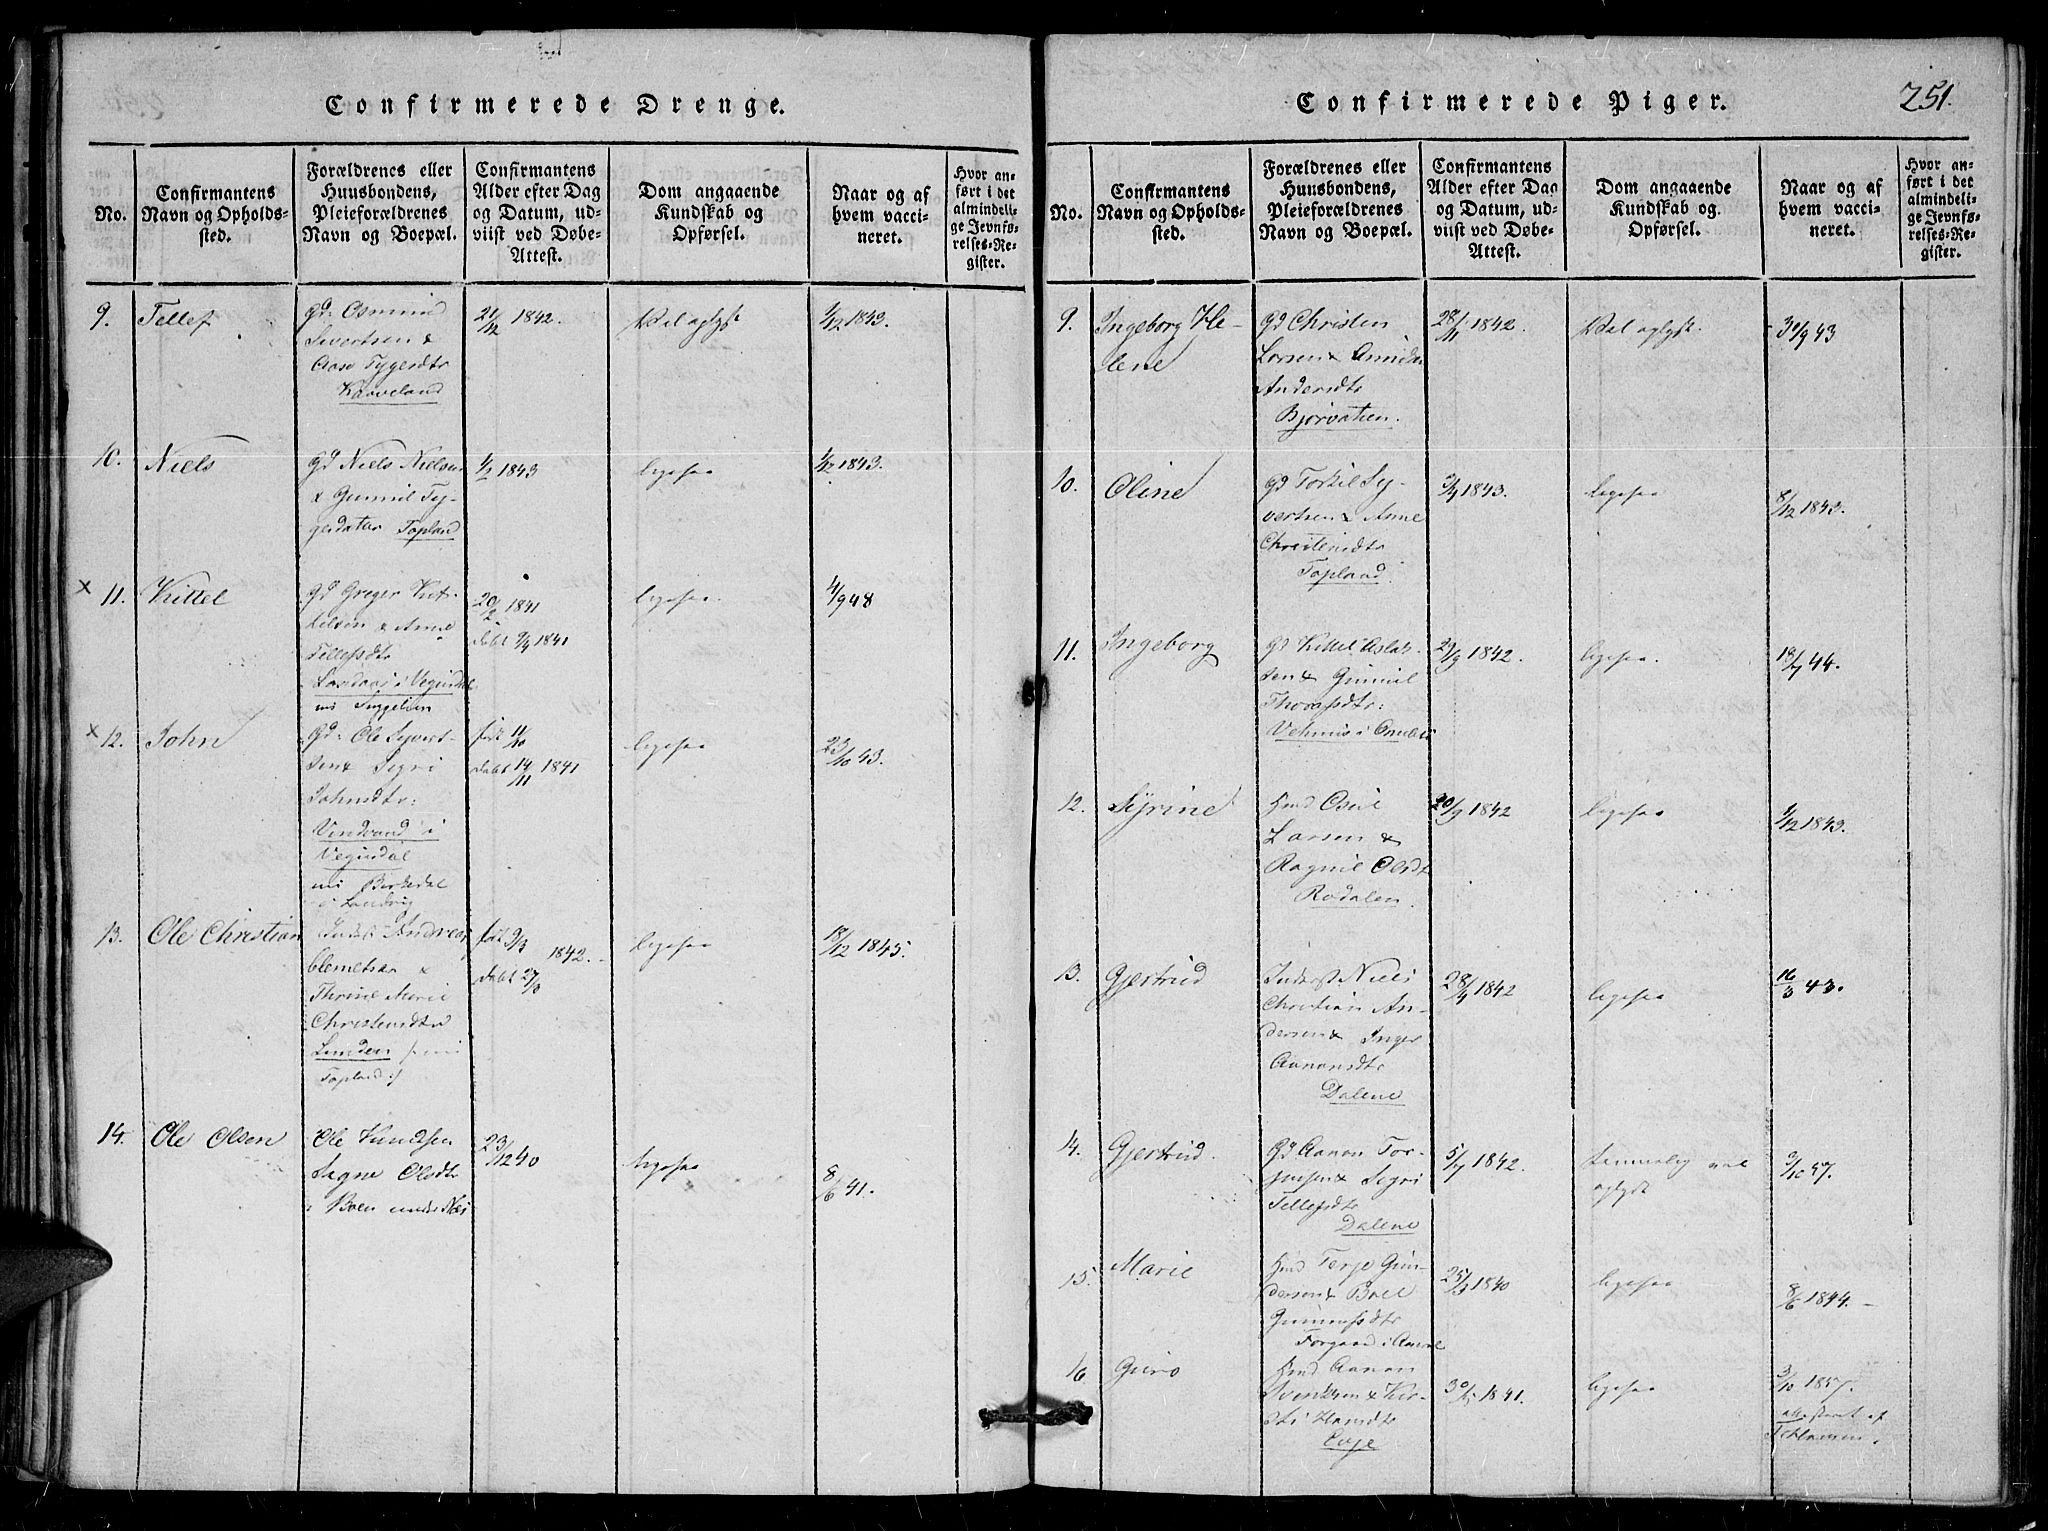 Confirmerede Drenge.
No.
Confirmantens
Navn og Opholds-
sted.
Forældrenes eller
Huusbondens,
Pleieforældrenes
Navn og Boepæl.
Confirmantens
Alder efter Dag
og Datum, ud-
viist ved Døbe-
Attest.
Dom angaaende
Kundskab og
Opførsel.
Naar og af
hvem vacci-
neret.
Hvor an-
ført i det
almindeli-
ge Jevnfø-
relses-Re-
gister.
9.
Tellef
Gd: Osmund
Sivertsen &
Aase Tygersdtr
Kaaveland
21/12 1842.
Vel oplyst
1/12 1843.
10.
Niels
Gd Niels Nielsen
& Gunnil Ty-
gersdatter Topland
1/2 1843
ligesaa
1/12 1843.
x 11.
Kittel
Gd Greger Kit-
telsen & Anne
Tellefsdtr
i Vegusdal
20/2 1841
døbt 9/4 1841
ligesaa
4/9 48
x 12.
John
Gd: Ole Syvert-
sen & Segri
Johnsdtr:
Vindvand i
Vegusdal
nu Birkedal
i Landvig
født 11/10
døbt 14/11 1841
ligesaa
23/10 43.
13.
Ole Christian
Inderst Andreas
Clemetsen &
Thrine Marie
Christensdtr
Lunden /: nu
Topland :/
født 9/3
1842.
døbt 27/3
ligesaa
18/12 1845.
14.
Ole Olsen
Ole Knudsen
Signe Olsdtr
i Boen under Næs
23/12 40
ligesaa
8/6 41.
Confirmerede Piger.
251.
No.
Confirmantens
Navn og Opholds-
sted.
Forældrenes eller
Huusbondens,
Pleieforældrenes
Navn og Boepæl.
Confirmantens
Alder efter Dag
og Datum, ud-
viist ved Døbe-
Attest.
Dom angaaende
Kundskab og
Opførsel.
Naar og af
hvem vacci-
neret.
Hvor an-
ført i det
almindeli-
ge Jevnfø-
relses-Re-
gister.
9.
Ingeborg He-
lene
Gd Christen
Larsen &
Andersdtr
Bjorvatten.
28/11 1842.
Vel oplyst
30/9 43
10.
Oline
Gd Torkil Sy-
vertsen & Anne
Christensdtr
Topland.
3/4 1843.
ligesaa
8/12 1843.
11.
Ingeborg
Gd Kittel Aslak-
sen & Gunnil
Thorsdtr:
29/9 1842.
ligesaa.
18/7 44.
12.
Syrine
Hmd Osuld
Larsen &
Ragnil Olsdtr
Rodalen.
20/9 1842
ligesaa
1/12 1843.
13.
Gjertrud
Inderst Niels
Christian An-
dersen & Inger
Aanonsdtr
Dalene
28/4 1842
ligesaa
16/3 43.
14.
Gjertrud.
Gd Aanon Tor-
jusen & Segri
Tellefsdtr
Dalene
5/7 1842.
temmelig vel
oplyst
3/10 57.
15.
Marie
Hmd Terje Gun-
dersen & Boel
Gunnufsdtr
25/3 1840
ligesaa
8/6 1844. -
16
Guro
Hmd Aanon
Svenksen & Kir-
sti Hansdtr
Evje
30/5 1841.
ligesaa
3/10 1857.
attesteret af